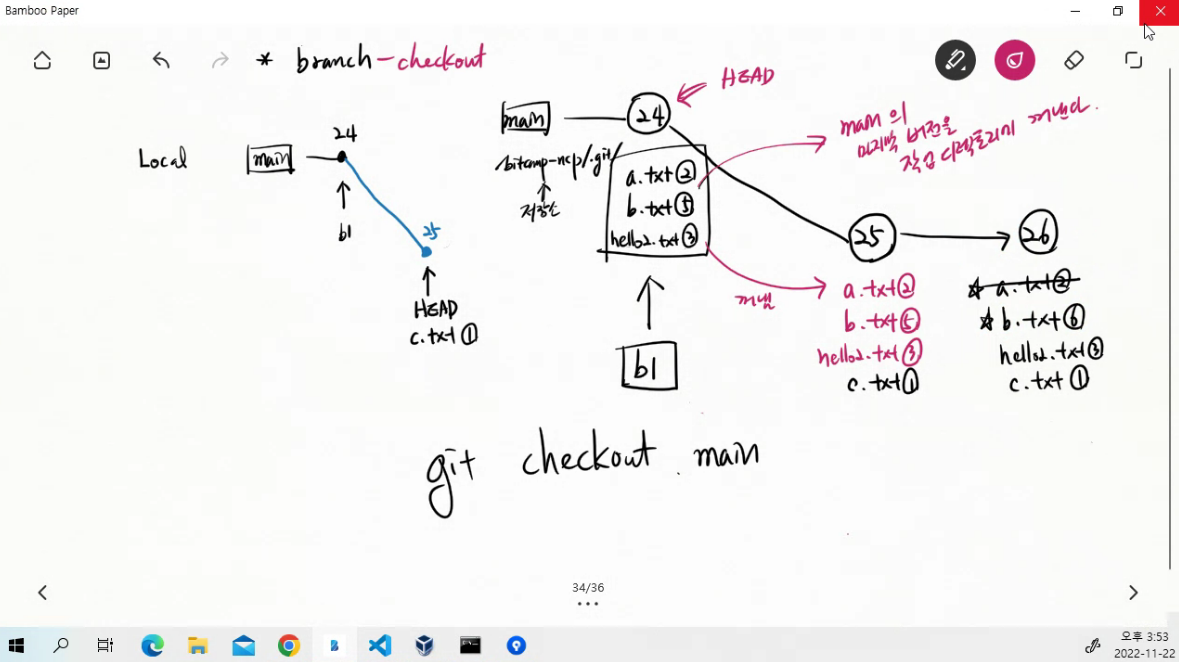 Bamboo Paper
* branch-checkout
Local
main
24
b1
25
HEAD
c.txt ①
main
24
HEAD
bitcamp-ncp/.git/
저장소
a.txt ②
b.txt ⑤
hello2.txt ③
b1
main의
마지막 버전을
작업 디렉토리에 꺼낸다.
꺼냄
25
a.txt ②
b.txt ⑤
hello2.txt ③
c.txt ①
26
☆ a.txt ②
☆ b.txt ⑥
hello2.txt ③
c.txt ①
git checkout main
34/36
오후 3:53
2022-11-22